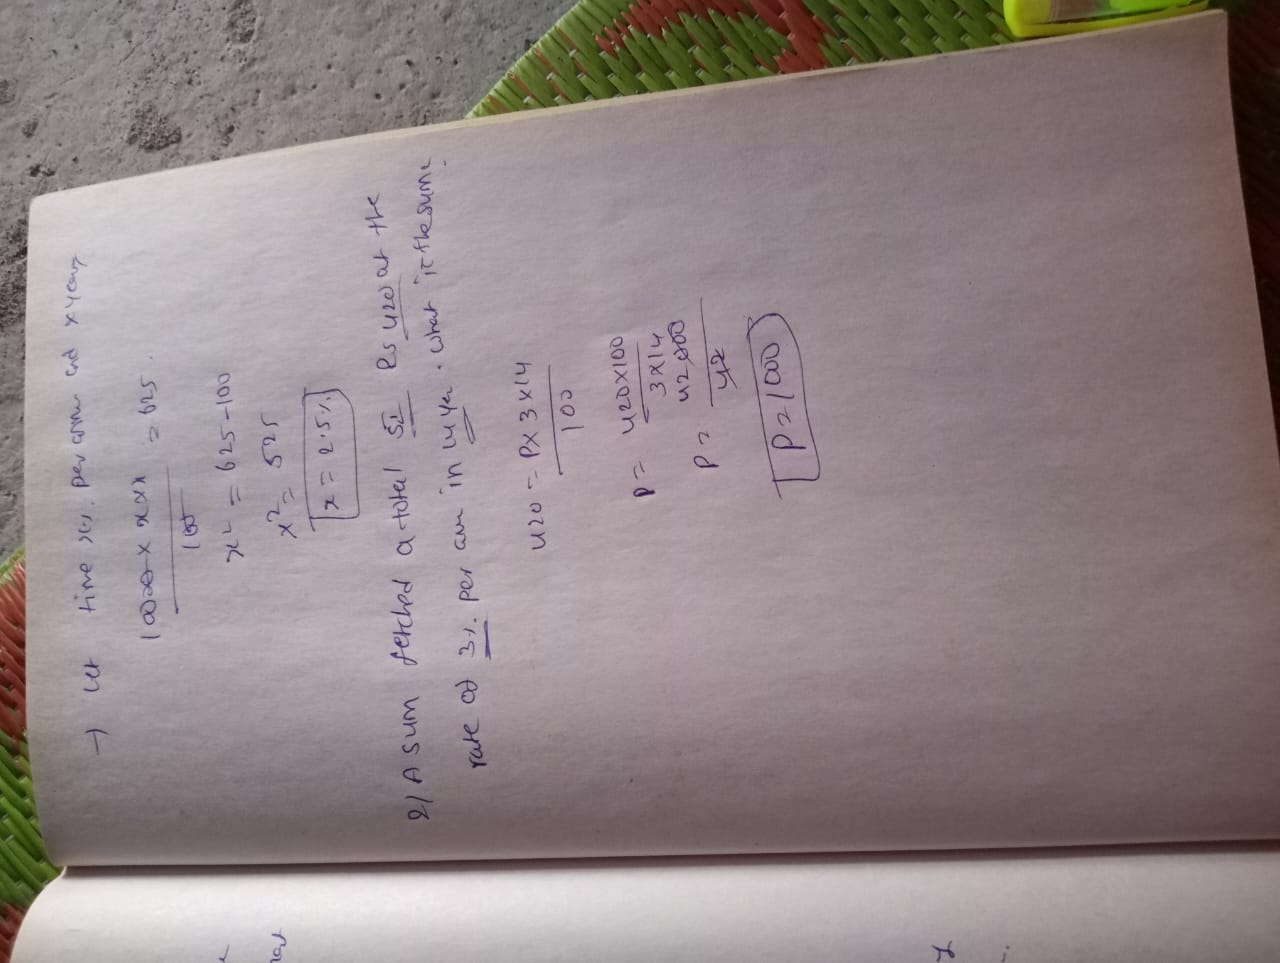 → Let time x%. per annum and x years
10000 × x × x / 100 = 625.
x² = 625-100
x² = 525
x = 2.5%
2) A sum fetched a total SI Rs 420 at the
rate of 3%. per ann in 14 yer. what is the sum.
420 = P × 3 × 14 / 100
P = 420×100 / 3×14
P = 42000 / 42
P = 1000